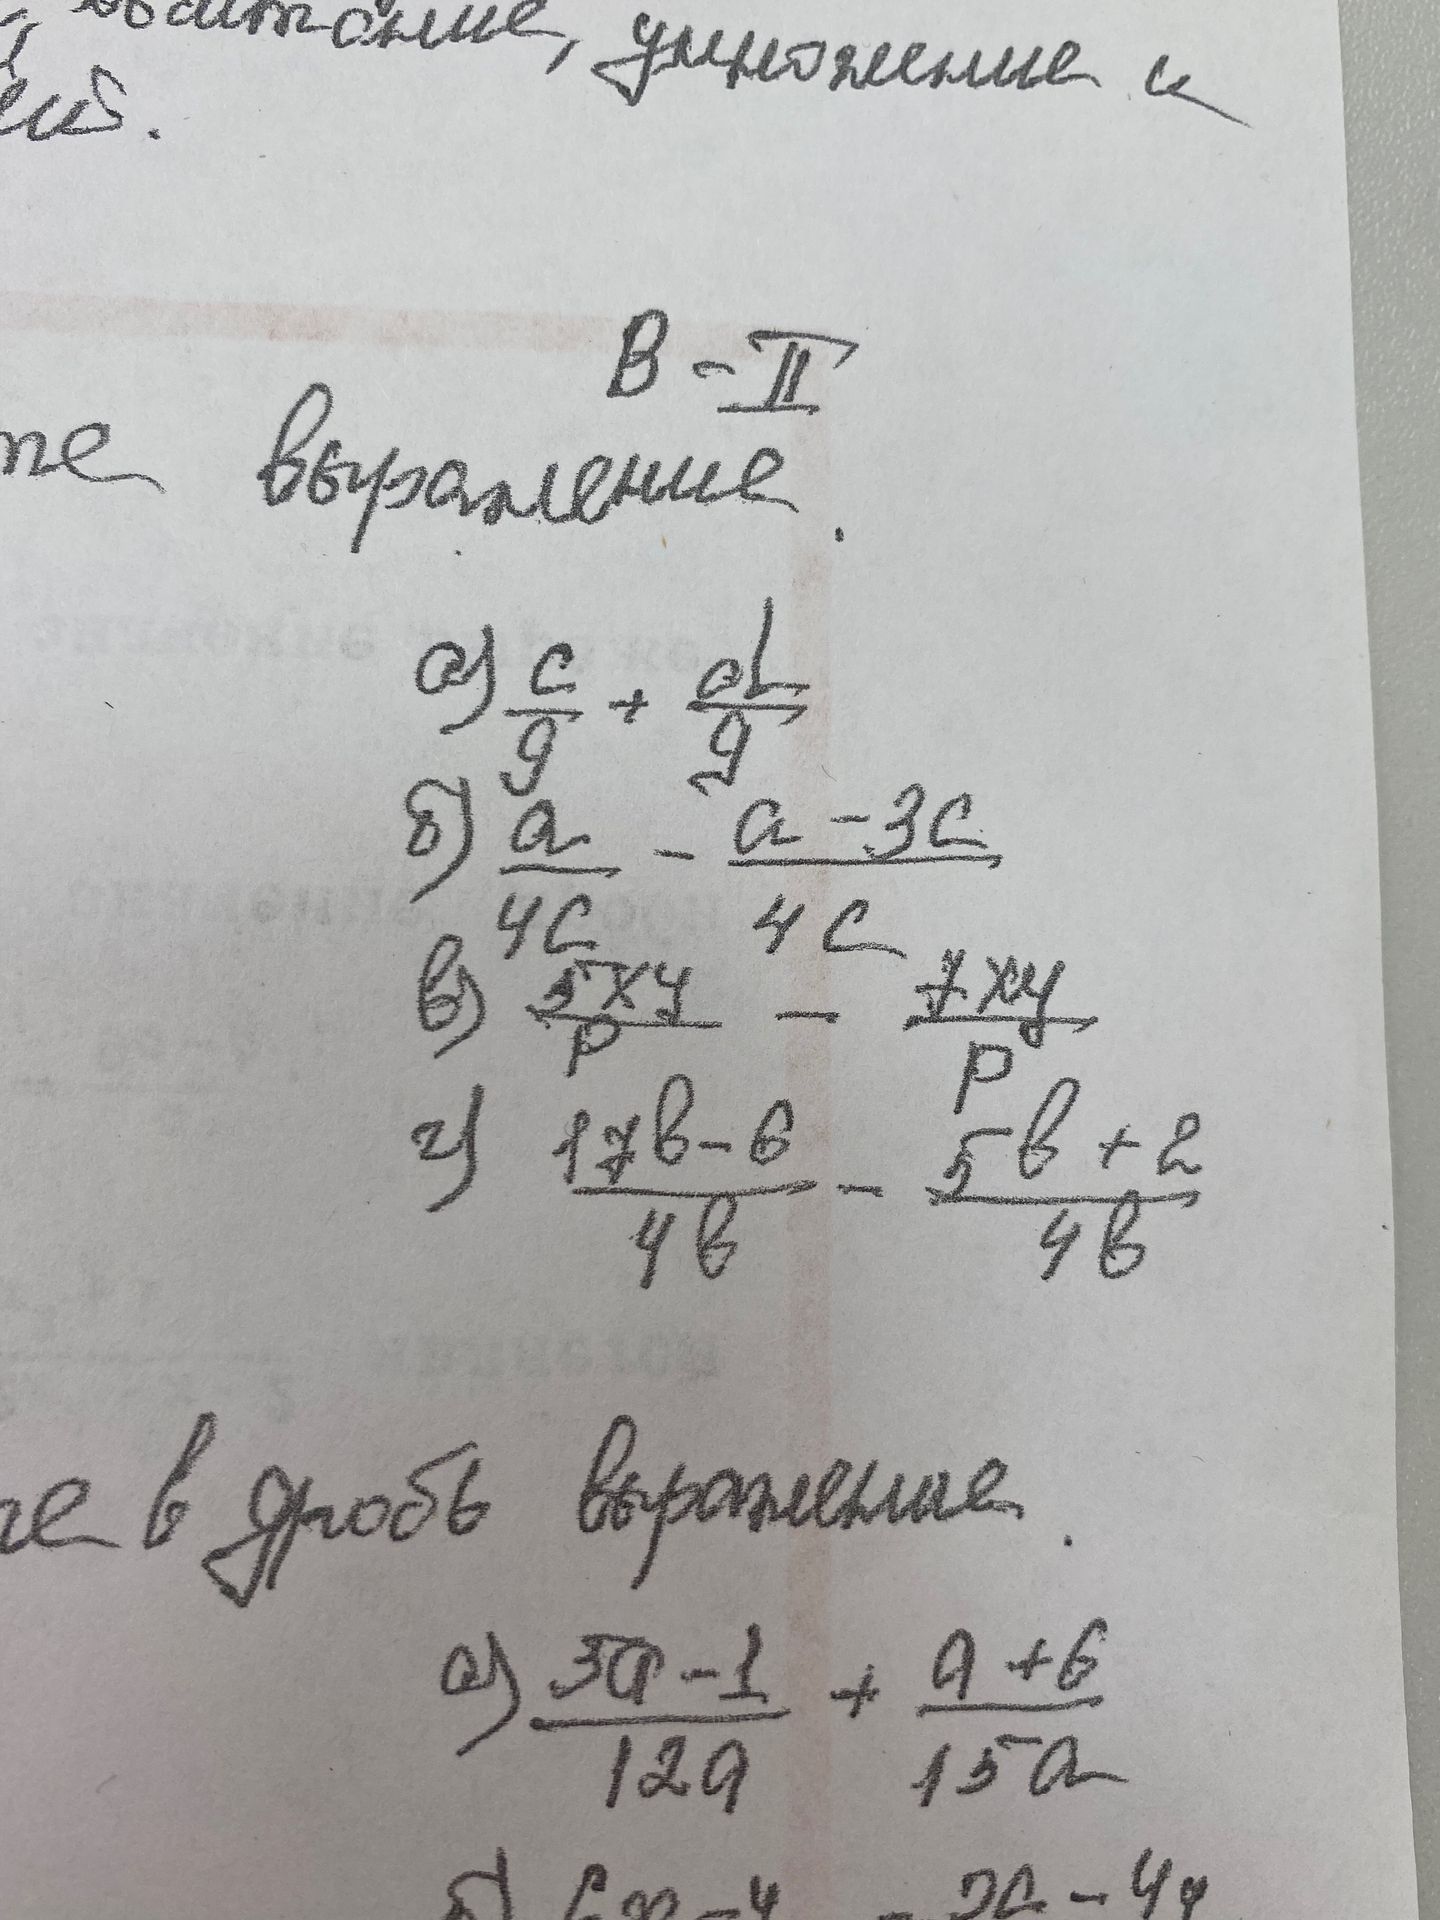 умножение и
В - II
выражение.
а) c/9 + d/9
б) a/4c - a-3c/4c
в) 5xy/p - 7xy/p
г) 17b-6/4b - 5b+2/4b
в дробь выражение.
а) 5a-1/12a + a+6/15a